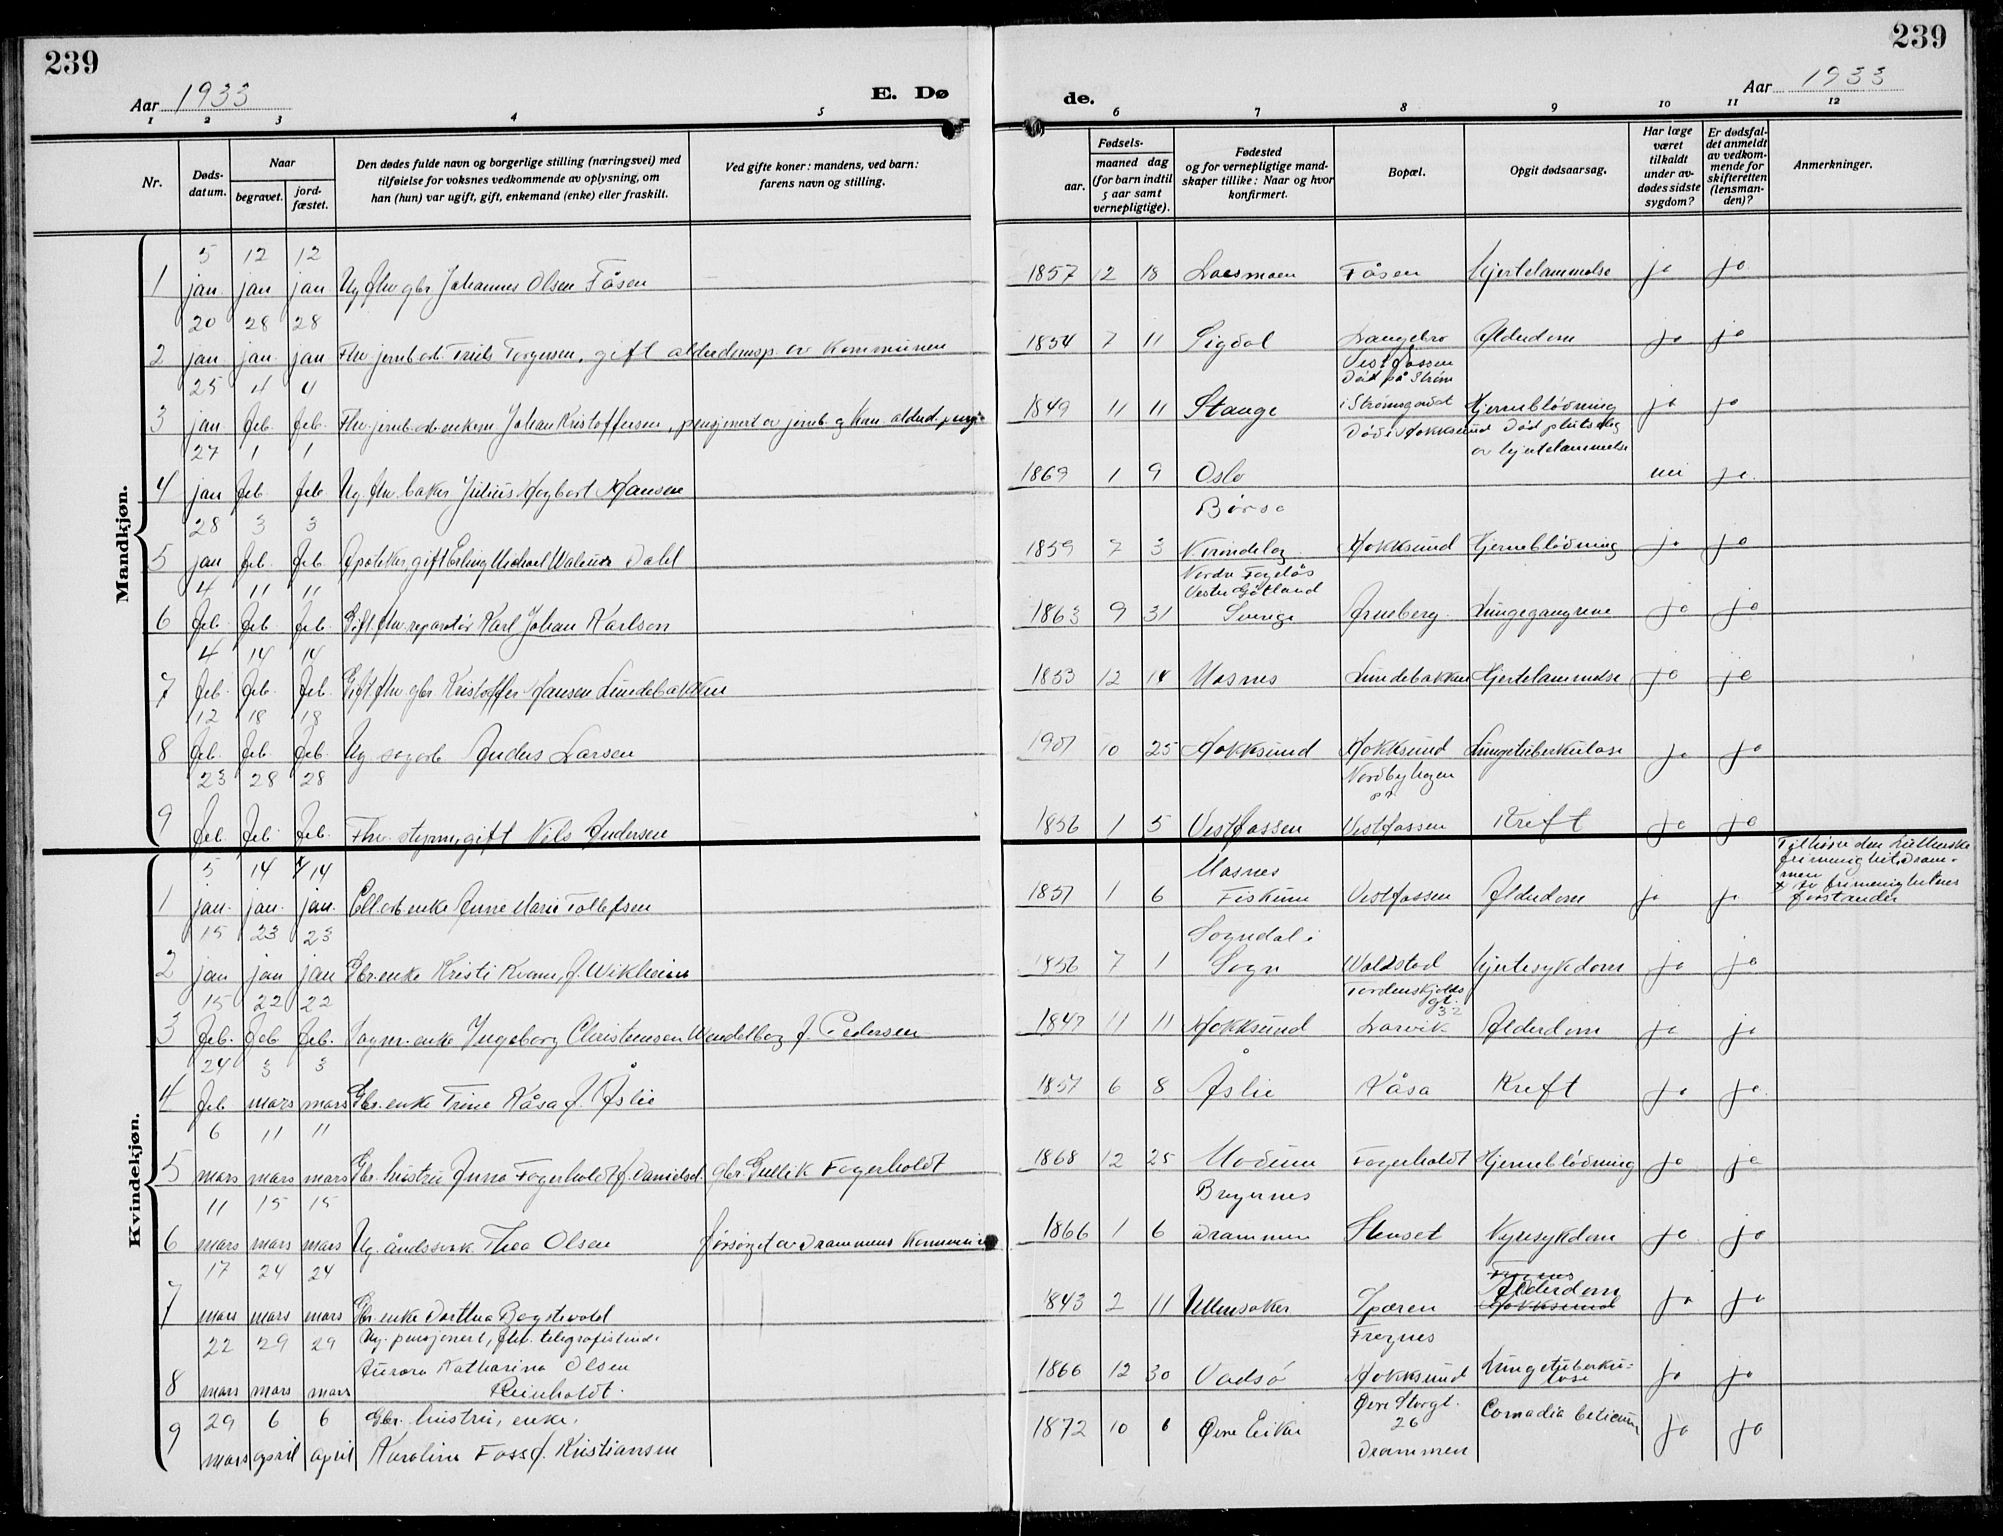 239
239
Aar 1933
E. Dø
de.
Aar 1933
1 2 3 4 5
6 7 8 9 10 11 12
Nr.
Døds-
datum.
Naar
begravet.
jord-
fæstet.
Den dødes fulde navn og borgerlige stilling (næringsvei) med
tilføielse for voksnes vedkommende av oplysning, om
han (hun) var ugift, gift, enkemand (enke) eller fraskilt.
Ved gifte koner: mandens, ved barn:
farens navn og stilling.
Fødsels-
aar.
maaned dag
(for barn indtil
5 aar samt
vernepligtige).
Fødested
og for vernepligtige mand-
skaper tillike: Naar og hvor
konfirmert.
Bopæl.
Opgit dødsaarsag.
Har læge
været
tilkaldt
under av-
dødes sidste
sygdom?
Er dødsfal-
det anmeldt
av vedkom-
mende for
skifteretten
(lensman-
den)?
Anmerkninger.
Mandkjøn.
5 12 12
1 jan. jan jan Ug. fhv gbr Johannes Olsen Fåsen 1857 12 18 Fåsen Hjertelammelse ja ja
20 28 28
2 jan jan. jan Fhv jernb.arb. Torgersen, gift alderdomsp. av kommunen 1854 7 11 Sigdal Langebro Alderdom ja ja
Vestfossen
25 4 4 Død på Strøm
3 jan feb. feb. Fhv jernb.arb. enkem Johan Kristoffersen, pensjonert av jernb. og kom. 1849 11 11 Stange i Strømsgodset Hjerneblødning ja ja
27 1 1 Død i Hokksund Død plutselig
av hjertelammelse
4 jan feb feb Ug. fhv. baker Julius Hagbart Hansen 1869 1 9 Oslo nei ja.
28 3 3 Børsa
5 jan feb. feb Apoteker, gift Erling Michael Dahl 1859 7 3 N. Trøndelag Hokksund Hjerneblødning ja ja
4 11 11 Vester Götland
6 feb. feb feb. Gift fhv. reparatør Karl Johan Karlson 1863 9 31 Sverige Lungegangrene ja ja
4 14 14
7 feb. feb. feb. Gift fhv gbr Kristoffer Hansen Lundebakken 1853 12 14 Lundebakken Hjertelammelse ja ja
12 18 18
8 feb. feb. feb. Ug Anders Larsen 1901 10 25 Hokksund Hokksund Lungetuberkulose ja ja
23 28 28 Nordbyhagen
9 feb feb feb. Fhv. gift Nils Andersen 1856 1 5 Vestfossen Vestfossen Kreft ja ja
Kvindekjøn.
5 14 14 Tilhører den Lutherske
frimenighet, Dram-
men
x av frimenighetens
forstander
1 jan. jan. jan. enke Anne Marie Tollefsen 1851 1 6 Fiskum Vestfossen Alderdom ja ja
15 23 23 Sogndal i
2 jan jan jan Gbr.enke Kristi Kvam, f. Wikheim 1856 7 1 Sogn Waldstad Hjertesykdom ja ja
15 22 22 Tordenskjolds
gt. 32
3 feb. feb feb. enke Ingeborg Christensen Wendelbog f. Pedersen 1847 11 11 Hokksund Larvik Alderdom ja ja
24 3 3
4 feb mars mars Gbr. enke Trine Kåsa f. Åslie 1851 6 8 Åslie Kåsa Kreft ja ja.
6 11 11
5 mars mars mars Gbr. hustru Anna Fagerholdt f. Danielsd. gbr. Gullik Fagerholdt 1868 12 25 Modum Fagerholdt Hjerneblødning ja ja
11 15 15 Bragernes
6 mars mars mars Ug. åndssvak Thea Olsen forsørget av Drammens kommune 1866 1 6 Drammen Stenset Nyresykdom ja ja
17 24 24
7 mars mars mars Gbr. enke Dorthea Bogstevold 1843 2 11 Ullensaker Alderdom Hokksund ja ja
22 29 29 Ug. pensjonert, fhv. telegrafistinde
Aurora Katharina Olsen
8 mars mars mars Reinholdt. 1866 12 30 Vadsø Hokksund Lungetuberku-
lose ja ja
29 6 6 Gbr. hustru, enke,
9 mars april april Karoline Foss f. Kristiansen 1872 10 6 Øvre Eiker Øvre Storgt.
26
Drammen ja ja